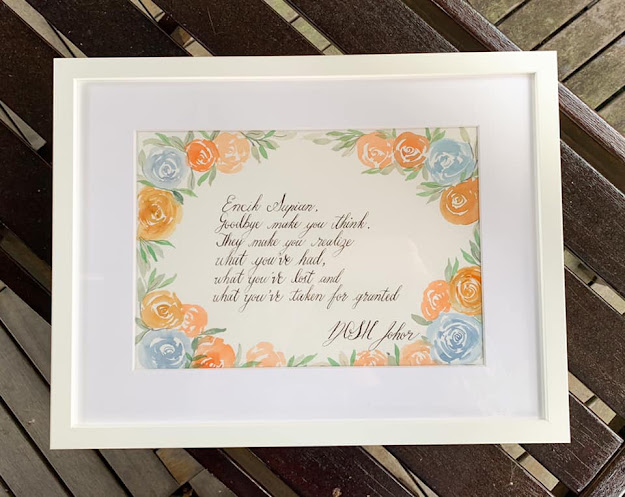 Encik Sapian.
Goodbye make you think.
They make you realize
what you've had,
what you've lost and
what you've taken for granted
Johor